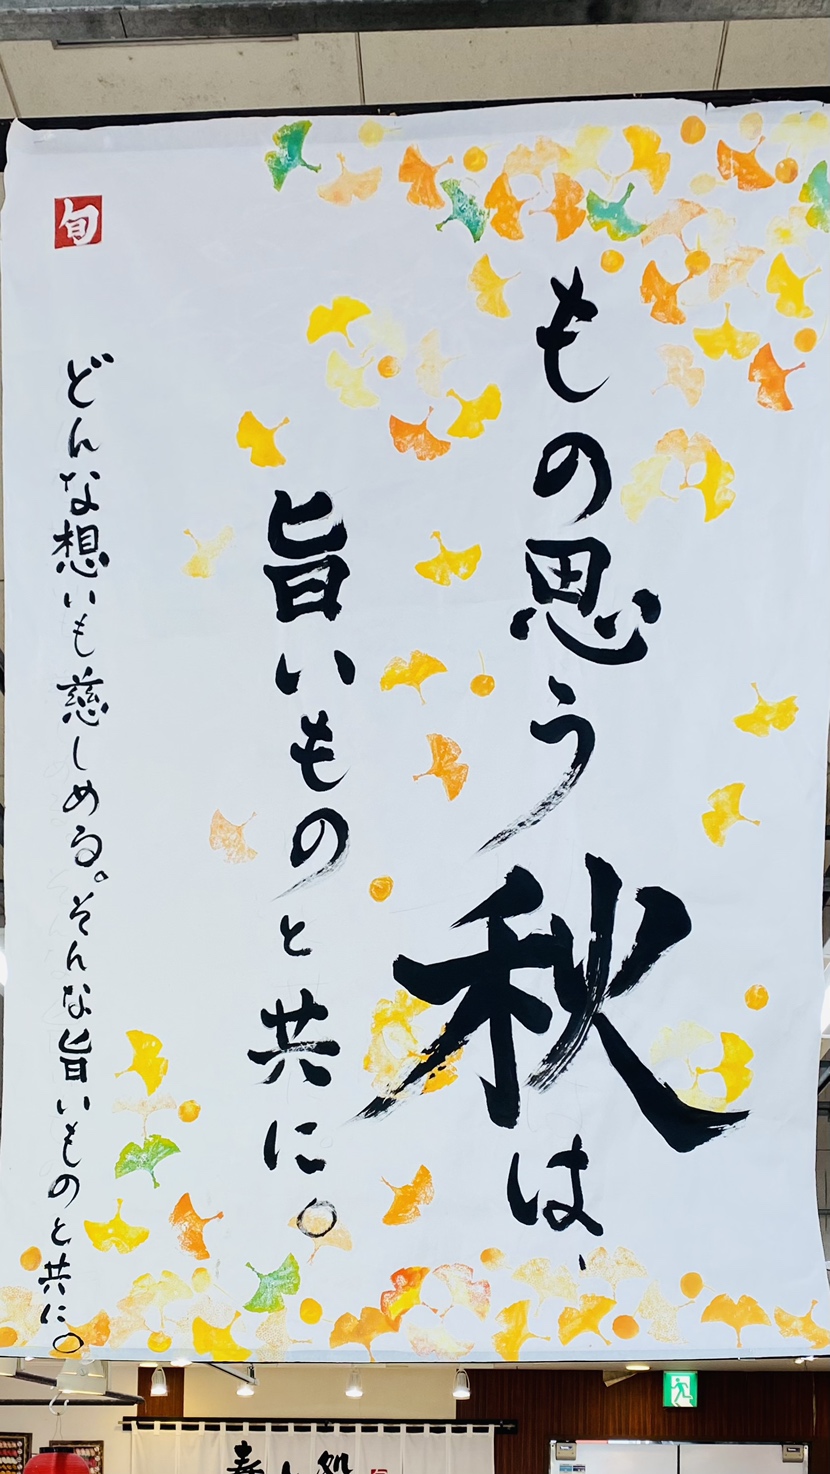 もの思う秋は、
旨いものと共に。
旬
どんな想いも慈しめる。そんな旨いものと共に。